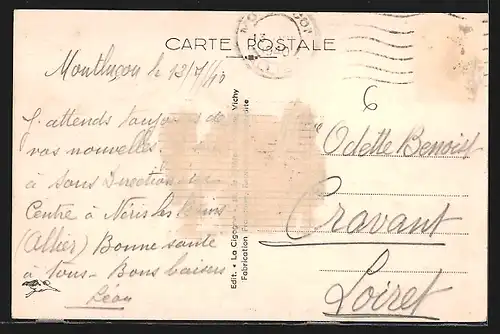 CARTE POSTALE
Montluçon le 13/7/40
J'attends toujours de
vos nouvelles
à Sous Direction
Centre à Néris les Bains
(Allier) Bonne santé
à tous - Bons baisers
Léon
6
Odette Benoist
Cravant
Loiret
Edit. « La Cigogne Vichy
Fabrication